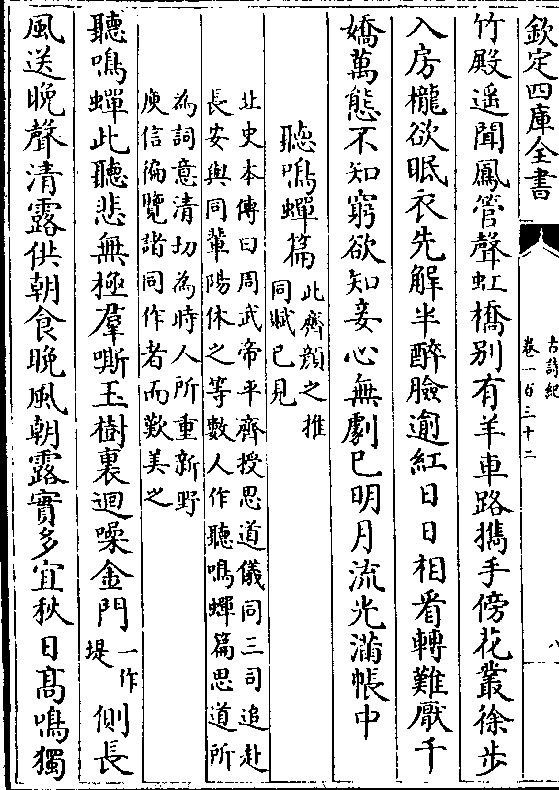 欽定四庫全書
古詩紀
卷一百三十二
八
竹殿遥聞鳳管聲虹橋别有羊車路攜手傍花叢徐步
入房櫳欲眠衣先解半醉臉逾紅日日相看轉難厭千
嬌萬態不知窮欲知妾心無劇已明月流光滿帳中
聽鳴蟬篇
此齊顔之推
同賦已見
北史本傳曰周武帝平齊授思道儀同三司追赴
長安與同輩陽休之等數人作聽鳴蟬篇思道所
為詞意清切為時人所重新野
庾信徧覽諸同作者而歎美之
聽鳴蟬此聽悲無極羣嘶玉樹裏迴噪金門
一作
堤
側長
風送晚聲清露供朝食晚風朝露實多宜秋日髙鳴獨